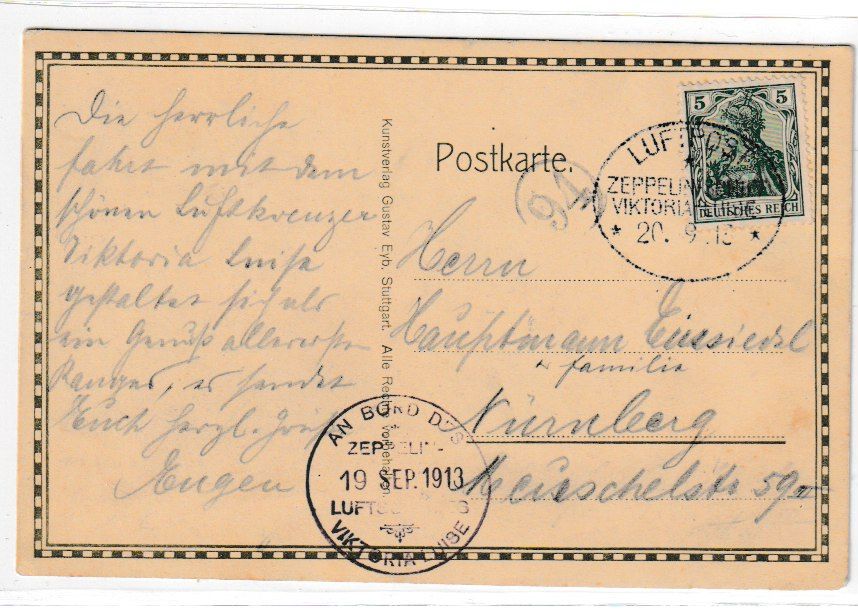 Die herrliche
Fahrt mit dem
schönen Luftkreuzer
Viktoria Luise
gestaltet sich als
ein Genuß allerersten
Ranges, es sendet
Euch herzl. Grüße
Eugen
Kunstverlag Gustav Eyb, Stuttgart. Alle Rechte vorbehalten.
Postkarte.
94
5 5
DEUTSCHES REICH
LUFTPOST
ZEPPELIN
VIKTORIA LUISE
* 20. 9. 13 *
Herrn
Hauptmann Einsiedel
+ Familie
Nürnberg
Meuschelstr 59 II
AN BORD DES
ZEPPELIN-
19 SEP. 1913
LUFTSCHIFFES
VIKTORIA LUISE